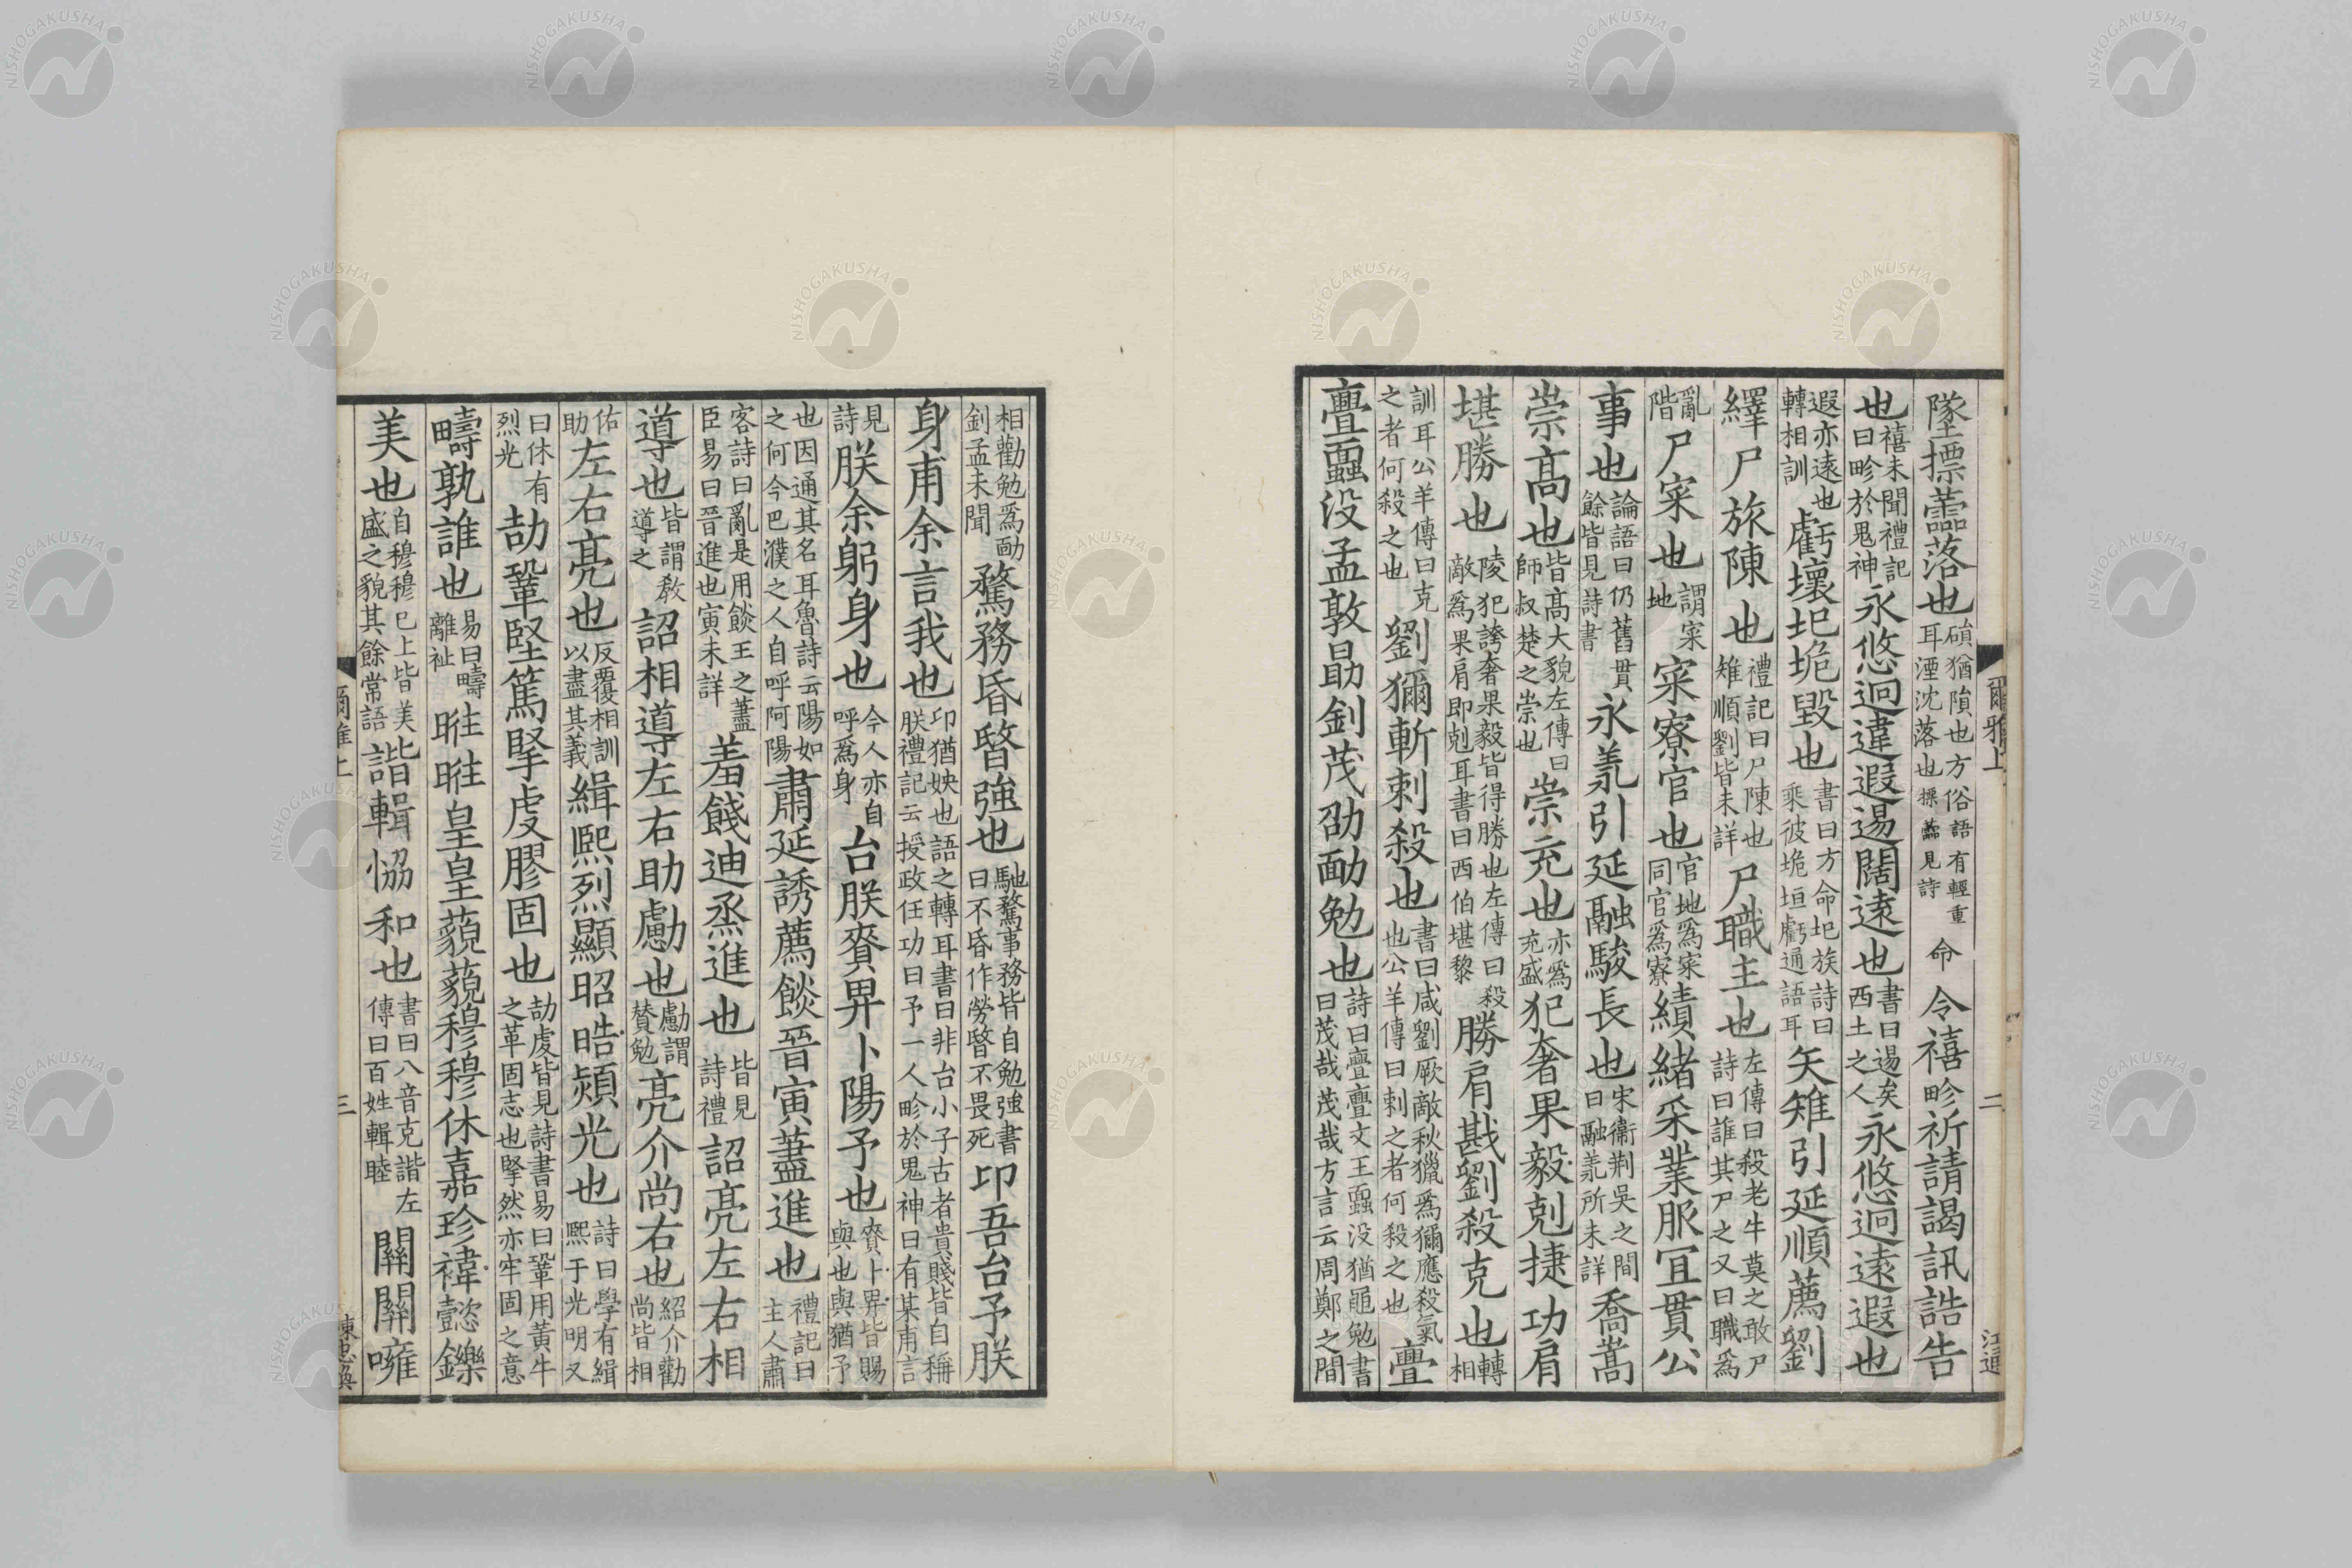 墜摽蘦落也磒猶隕也方俗語有輕重耳湮沈落也摽蘦見詩命令禧畛祈請謁訊誥告
也禧未聞禮記曰畛於鬼神永悠迥違遐逷闊遠也書曰逷矣西土之人永悠迥遠遐也
遐亦遠也轉相訓虧壞圮垝毀也書曰方命圮族詩曰乘彼垝垣虧通語耳矢雉引延順薦劉
繹尸旅陳也禮記曰尸陳也雉順劉皆未詳尸職主也左傳曰殺老牛莫之敢尸詩曰誰其尸之又曰職爲
亂階尸寀也謂寀地寀寮官也官地爲寀同官爲寮績緒采業服宜貫公
事也論語曰仍舊貫餘皆見詩書永羕引延融駿長也宋衞荆吳之間曰融羕所未詳喬嵩
崇高也皆高大貌左傳曰師叔楚之崇也崇充也亦爲充盛犯奢果毅剋捷功肩
堪勝也陵犯誇奢果毅皆得勝也左傳曰殺敵爲果肩即剋耳書曰西伯堪黎勝肩戡劉殺克也轉相
訓耳公羊傳曰克之者何殺之也劉獮斬刺殺也書曰咸劉厥敵秋獵爲獮應殺氣也公羊傳曰刺之者何殺之也亹
亹蠠没孟敦勗釗茂劭勔勉也詩曰亹亹文王蠠没猶黽勉書曰茂哉茂哉方言云周鄭之間
相勸勉爲勔釗孟未聞騖務昏暋強也馳騖事務皆自勉強書曰不昏作勞暋不畏死卬吾台予朕
身甫余言我也卬猶姎也語之轉耳書曰非台小子古者貴賤皆自稱朕禮記云授政任功曰予一人畛於鬼神曰有某甫言
見詩朕余躬身也今人亦自呼爲身台朕賚畀卜陽予也賚卜畀皆賜與也與猶予
也因通其名耳魯詩云陽如之何今巴濮之人自呼阿陽肅延誘薦餤晉寅藎進也禮記曰主人肅
客詩曰亂是用餤王之藎臣易曰晉進也寅未詳羞餞迪烝進也皆見詩禮詔亮左右相
導也皆謂教導之詔相導左右助勴也勴謂贊勉亮介尚右也紹介勸尚皆相
佑助左右亮也反覆相訓以盡其義緝熙烈顯昭晧熲光也詩曰學有緝熙于光明又
曰休有烈光劼鞏堅篤掔虔膠固也劼虔皆見詩書易曰鞏用黃牛之革固志也掔然亦牢固之意
疇孰誰也易曰疇離祉暀暀皇皇藐藐穆穆休嘉珍禕懿鑠
美也自穆穆已上皆美盛之貌其餘常語諧輯協和也書曰八音克諧左傳曰百姓輯睦關關噰
爾雅上
二
三
NISHOGAKUSHA